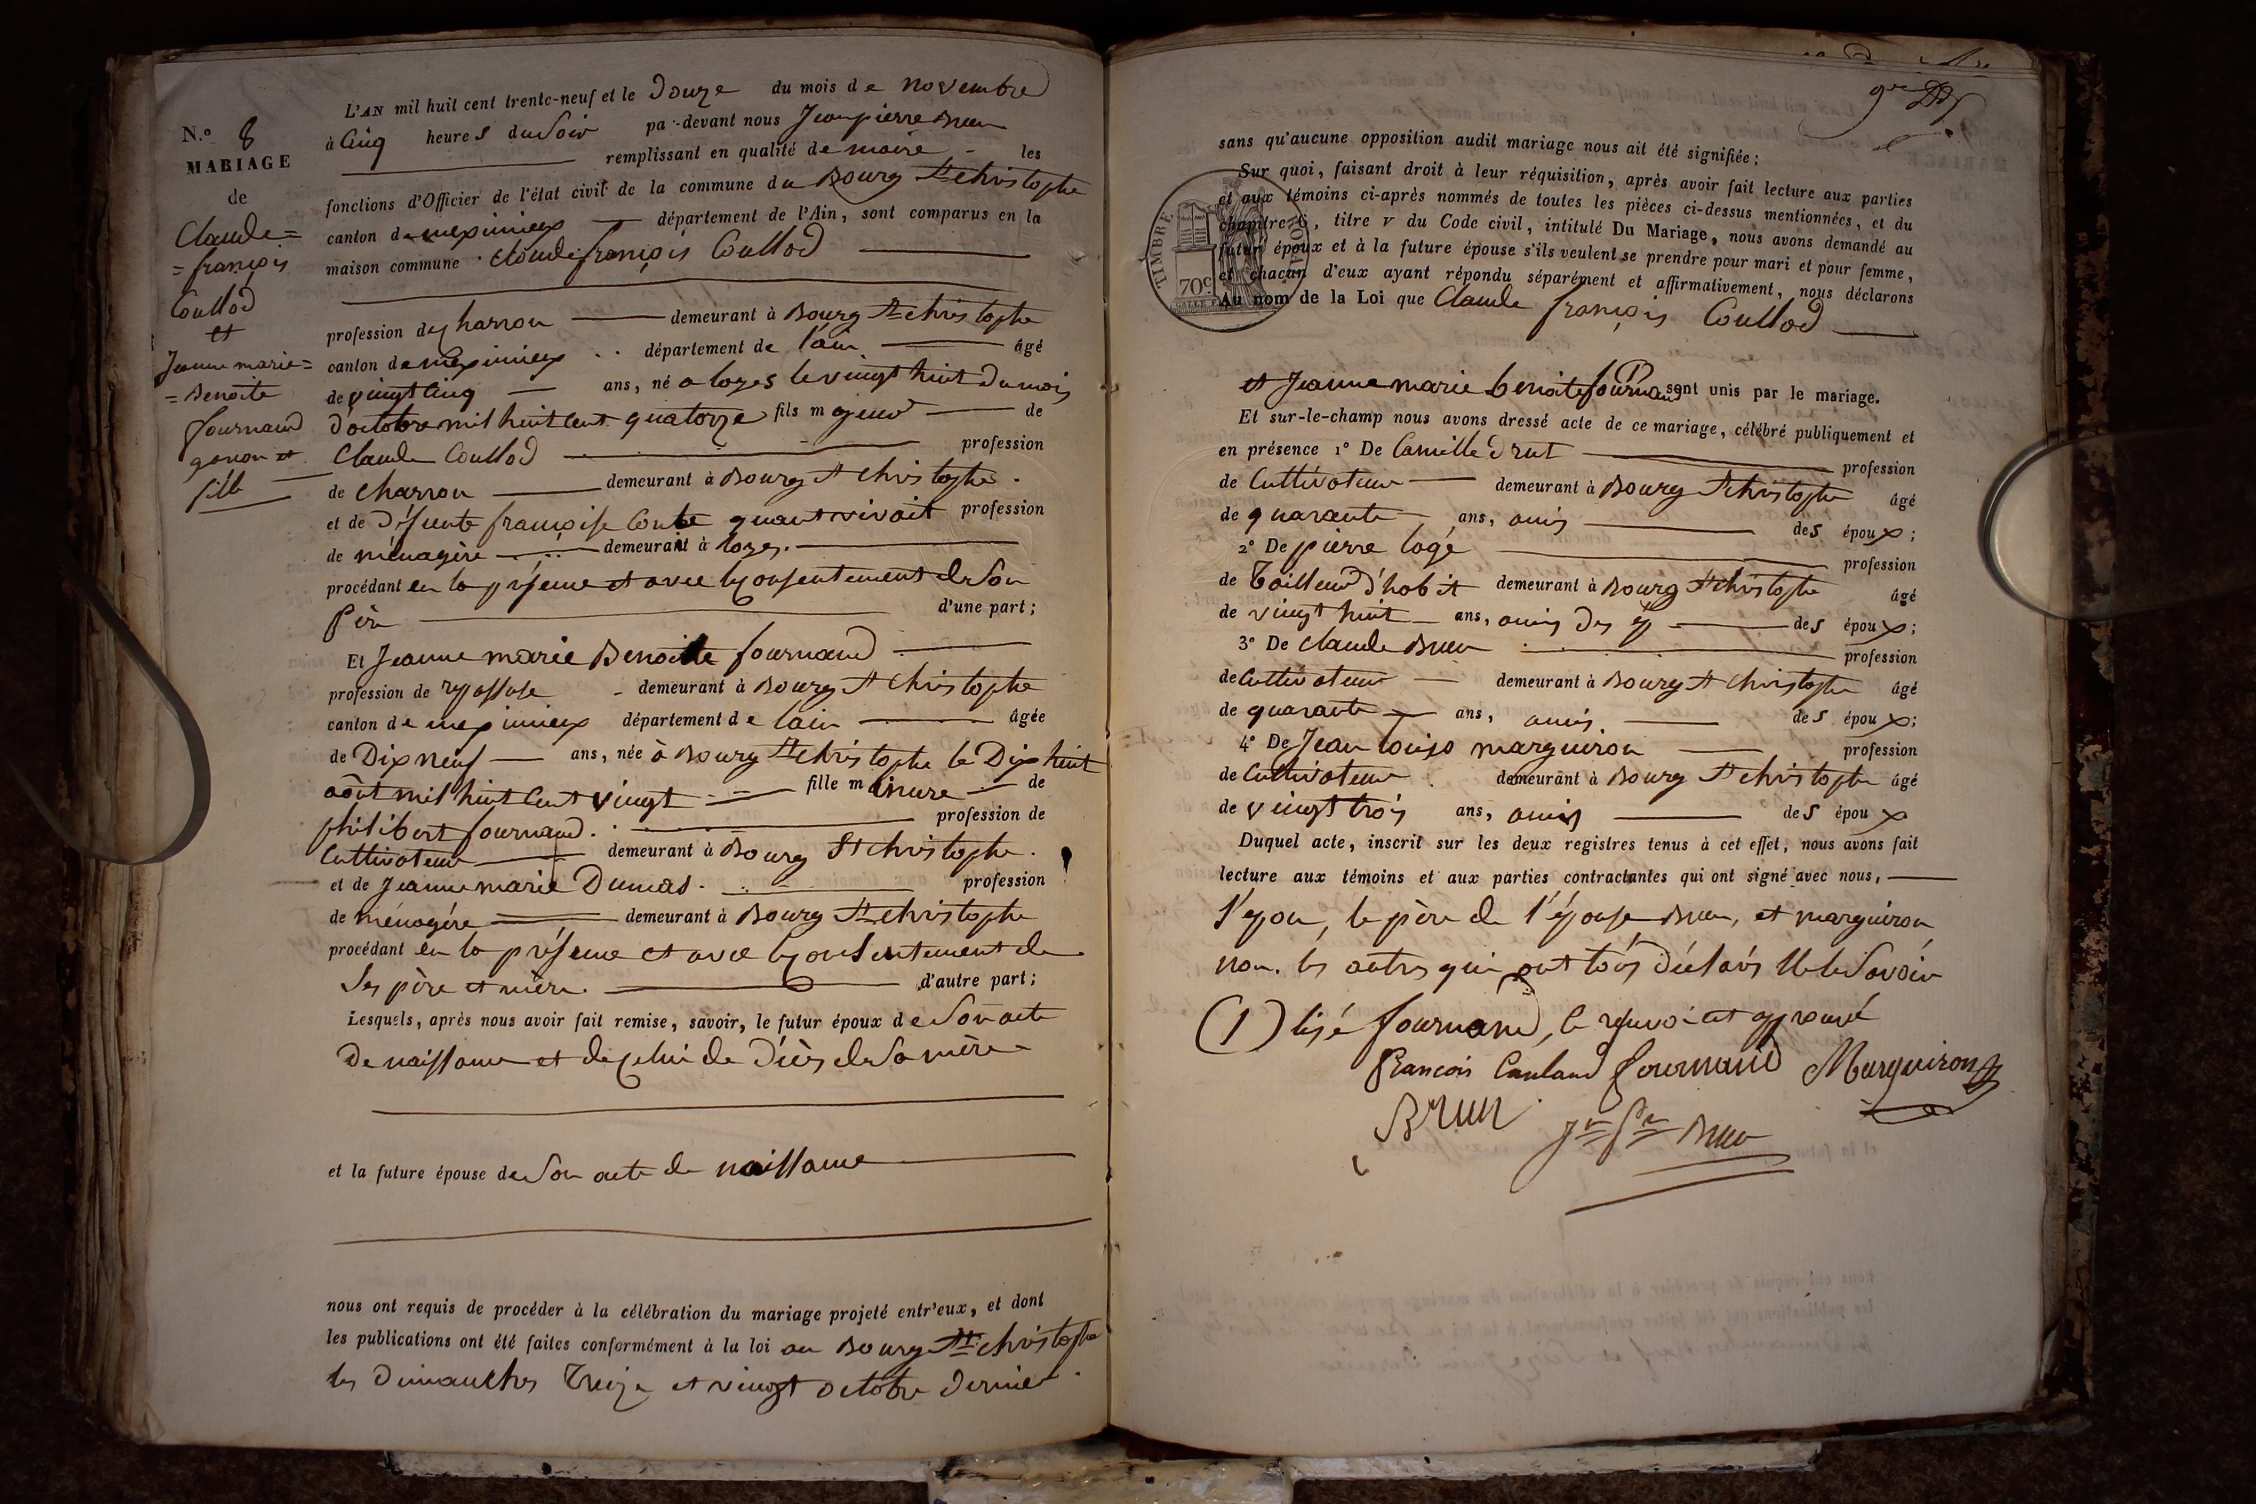 N.º 8
MARIAGE
de
Claude=
=françois
Coullod
et
Jeanne marie=
=Benoite
fournand
garcon et
fille
L'AN mil huit cent trente-neuf et le Douze du mois de novembre
à Cinq heures du Soir par-devant nous Jean pierre Brun
remplissant en qualité de maire les
fonctions d'Officier de l'état civil de la commune du Bourg St christophe
canton de meximieux département de l'Ain, sont comparus en la
maison commune Claude françois Coullod
profession de charron demeurant à Bourg St christophe
canton de meximieux département de l'ain âgé
de vingt cinq ans, né a loyes le vingt huit du mois
d'octobre mil huit cent quatorze fils majeur de
Claude Coullod profession
de charron demeurant à Bourg St christophe.
et de défunte françoise Conte quant vivait profession
de ménagère demeurant à loyes.
procédant en la présence et avec le consentement de Son
Père d'une part;
Et Jeanne marie Benoitte fournand
profession de repasseuse demeurant à Bourg St christophe
canton de meximieux département de l'ain âgée
de Dix neuf ans, née à Bourg St christophe le Dix huit
août mil huit cent vingt fille mineure de
philibert fournand. profession de
Cultivateur demeurant à Bourg St christophe.
et de Jeanne marie Dumas. profession
de ménagère demeurant à Bourg St christophe
procédant en la présence et avec le consentement de
Ses père et mère. d'autre part;
Lesquels, après nous avoir fait remise, savoir, le futur époux de Son acte
De naissance et de celui de décès de Sa mère
et la future épouse de Son acte de naissance
nous ont requis de procéder à la célébration du mariage projeté entr'eux, et dont
les publications ont été faites conformément à la loi au Bourg St christophe
les Dimanches Treize et vingt octobre dernier.
sans qu'aucune opposition audit mariage nous ait été signifiée;
Sur quoi, faisant droit à leur réquisition, après avoir fait lecture aux parties
et aux témoins ci-après nommés de toutes les pièces ci-dessus mentionnées, et du
chapitre 6, titre V du Code civil, intitulé Du Mariage, nous avons demandé au
futur époux et à la future épouse s'ils veulent se prendre pour mari et pour femme,
et chacun d'eux ayant répondu séparément et affirmativement, nous déclarons
Au nom de la Loi que Claude françois Coullod
TIMBRE ROYAL
70c
et Jeanne marie benoite fournand sont unis par le mariage.
Et sur-le-champ nous avons dressé acte de ce mariage, célébré publiquement et
en présence 1º De Camille Drut profession
de Cultivateur demeurant à Bourg St christophe âgé
de quarante ans, amis des époux;
2º De pierre logé profession
de Tailleur d'habit demeurant à Bourg St christophe âgé
de vingt huit ans, amis des ép des époux;
3º De Claude Brun profession
de Cultivateur demeurant à Bourg St christophe âgé
de quarante ans, amis des époux;
4º De Jean Louis marguiron profession
de Cultivateur demeurant à Bourg St christophe âgé
de vingt trois ans, amis des époux
Duquel acte, inscrit sur les deux registres tenus à cet effet, nous avons fait
lecture aux témoins et aux parties contractantes qui ont signé avec nous,
l'epou, le père de l'épouse Brun, et marguiron
non. les autres qui ont tous déclarés ne le Savoir
(1) fournand, le renvoi est approuvé
francois Coulaud fournand Marguiron
Brun
Jn Pre Brun